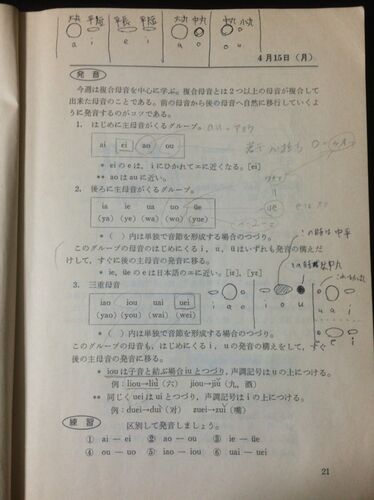 大丸 平短 平長 平短 大丸 中丸 中丸 小丸
a i e i a o o u
4月15日（月）
発音
今週は複合母音を中心に学ぶ。複合母音とは2つ以上の母音が複合して
出来た母音のことである。前の母音から後の母音へ自然に移行していくよ
うに発音するのがコツである。
1. はじめに主母音がくるグループ。
ai ei ao ou
* eiのeは，iにひかれてエに近くなる。[ei]
** aoはauに近い。
2. 後ろに主母音がくるグループ。
ia ie ua uo üe
(ya) (ye) (wa) (wo) (yue)
üe
* （ ）内は単独で音節を形成する場合のつづり。
このグループの母音のはじめにくるi，u，üはいずれも発音の構えだ
けして，すぐに後の主母音の発音に移る。
* ie，üeのeは日本語のエに近い。[iε]，[yε]
3. 三重母音
iao iou uai uei
(yao) (you) (wai) (wei)
i a o
i o u
u a i
u e i
* （ ）内は単独で音節を形成する場合のつづり。
このグループの母音も，はじめにくるi，uの発音の構えをして，すぐ
後の主母音の発音に移る。
* iouは子音と結ぶ場合iuとつづり，声調記号はuの上につける。
例：liou→liù（六） jiou→jiǔ（九，酒）
** 同じくueiはuiとつづり，声調記号はiの上につける。
例：duei→duì（対） zuei→zuǐ（嘴）
練習
区別して発音しましょう。
① ai — ei ② ao — ou ③ ie — üe
④ ou — uo ⑤ iao — iou ⑥ uai — uei
21